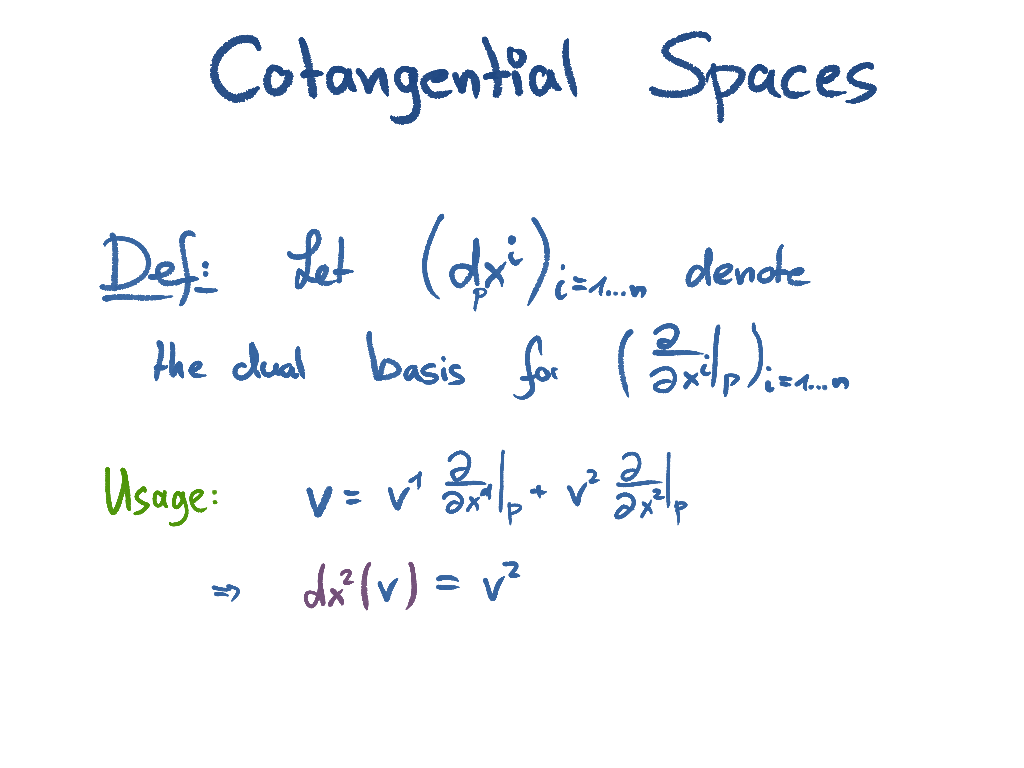 Cotangential Spaces
Def: Let (dₚxⁱ)ᵢ₌₁…ₙ denote
the dual basis for (∂/∂xⁱ|ₚ)ᵢ₌₁…ₙ
Usage: v = v¹ ∂/∂x¹|ₚ + v² ∂/∂x²|ₚ
⇒ dx²(v) = v²